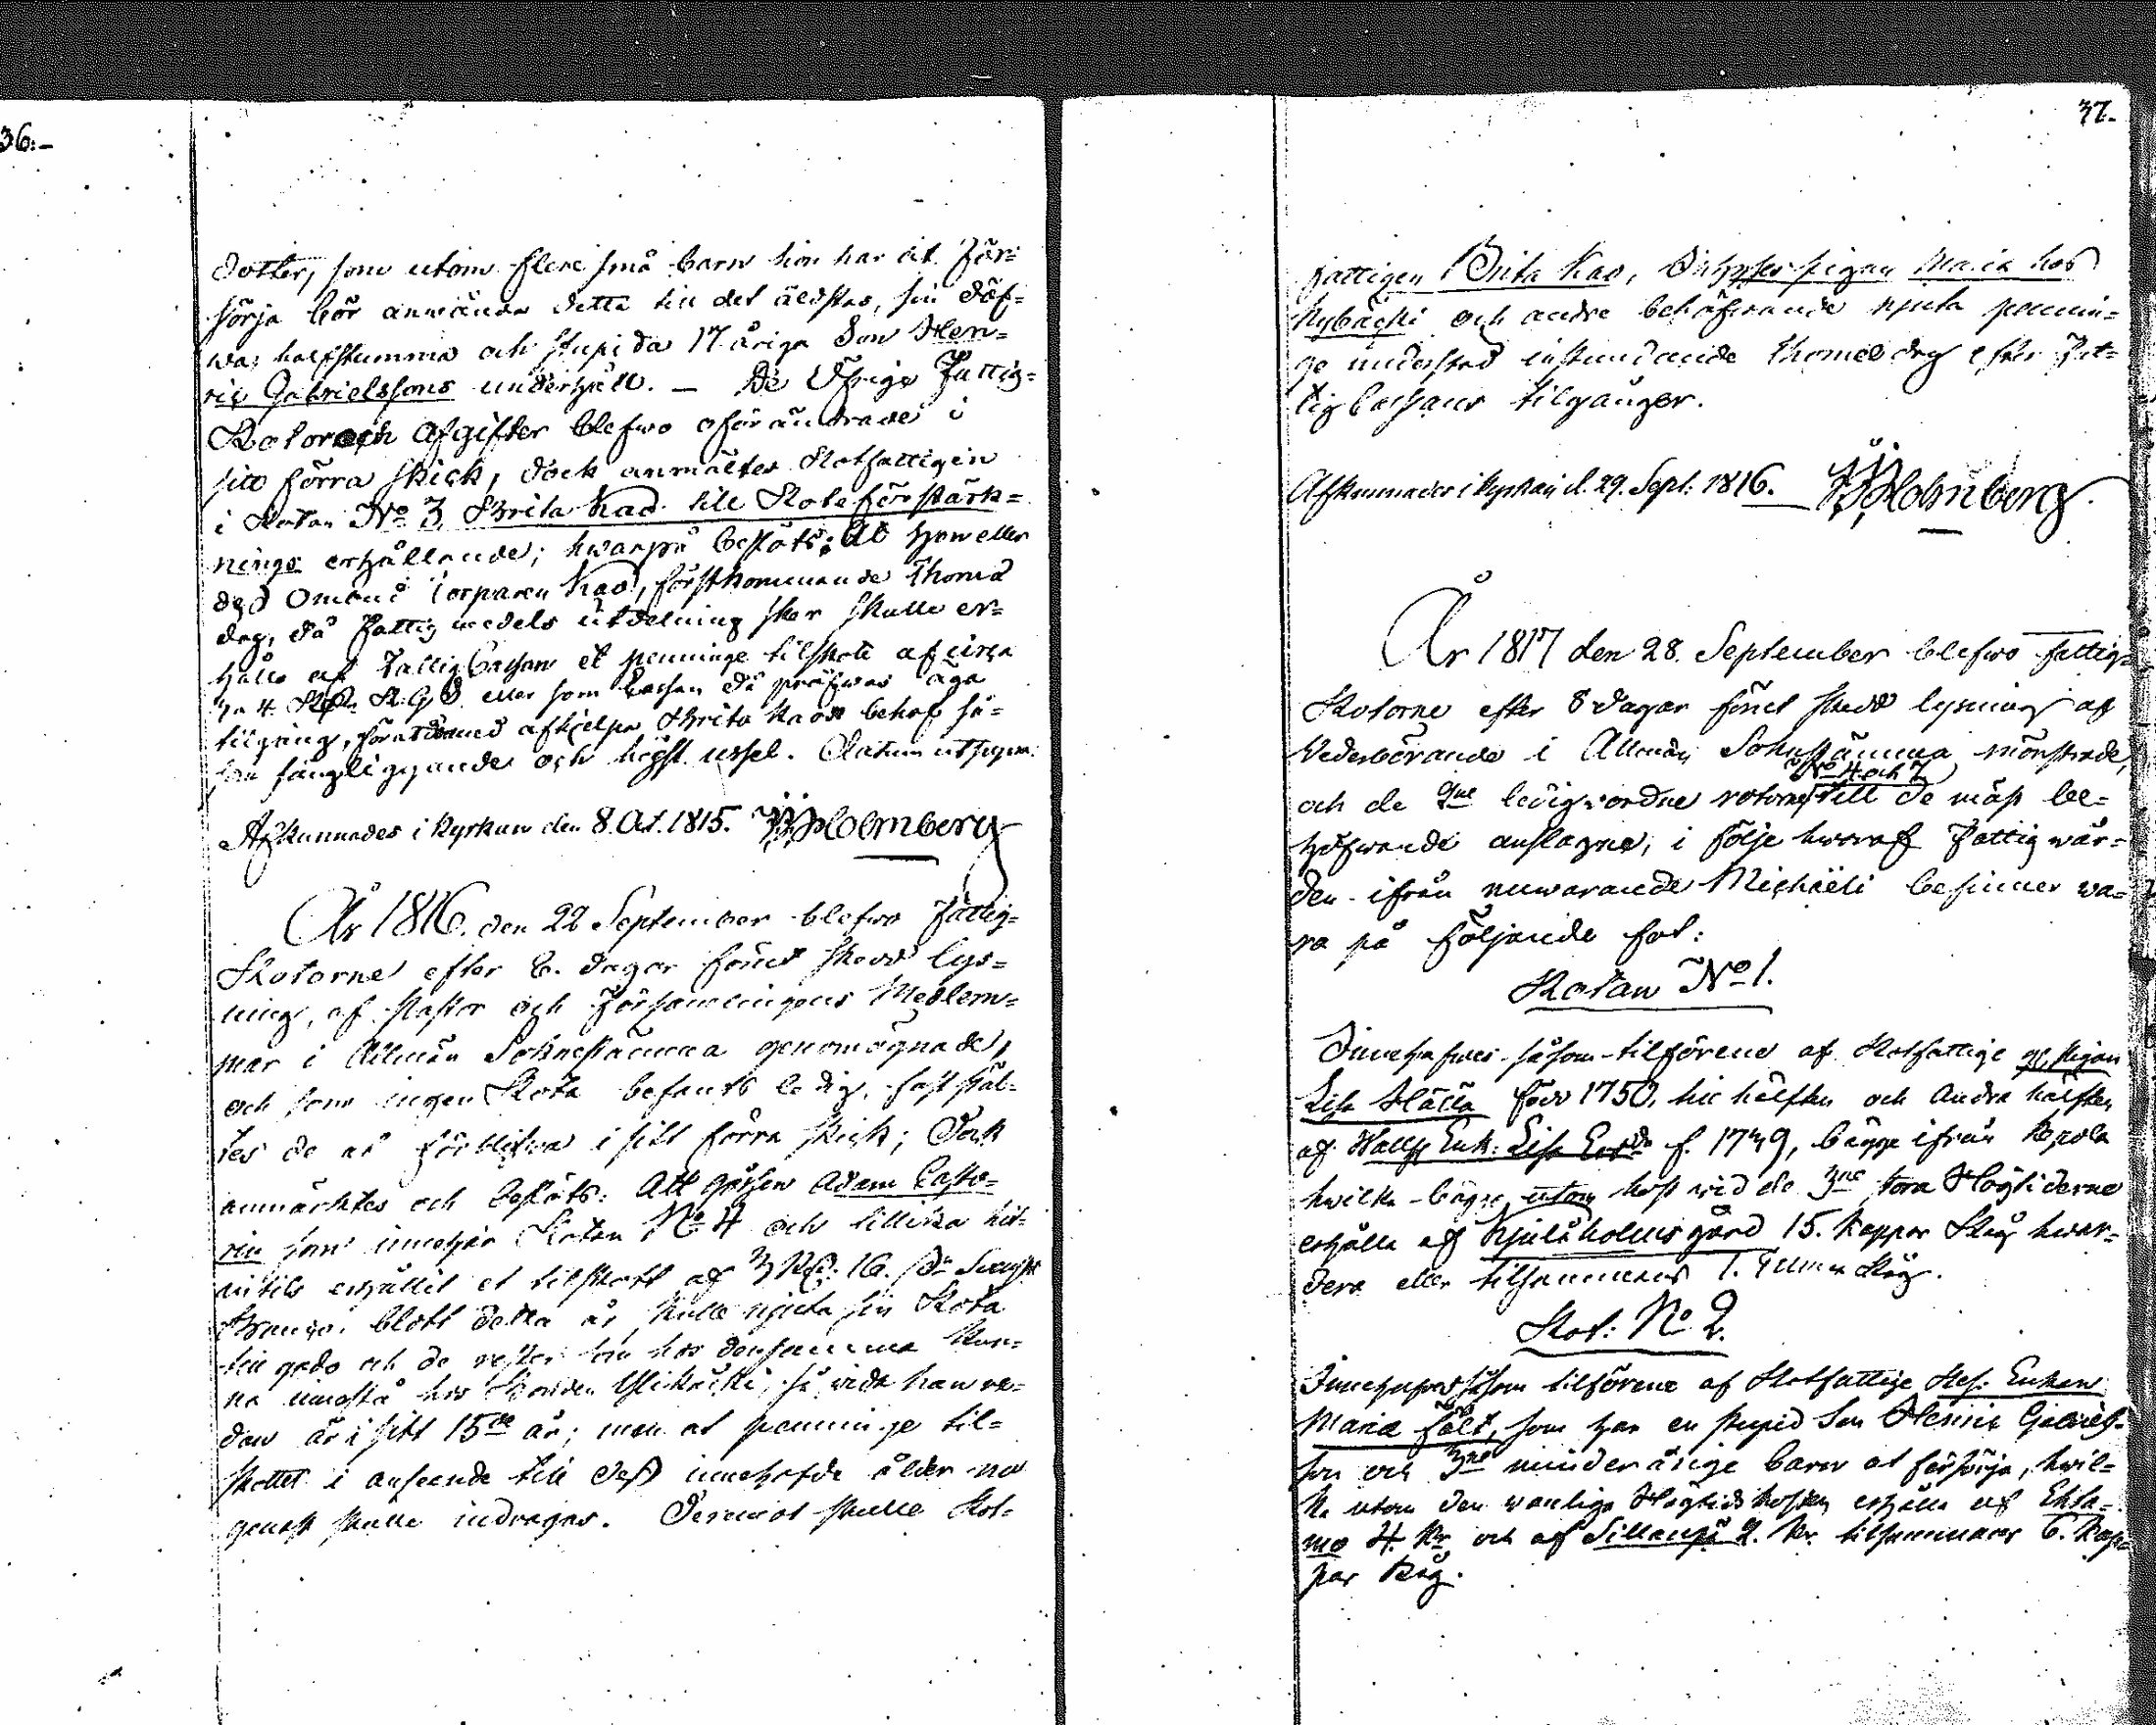 36:-
dotter, som utom flere små barn hon har at för=
sörja bör anwända detta till det äldstas, sin döf=
wa, halfstumma och stupida 17 åriga Son Hen=
ric Gabrielssons underhåll. — De Öfrige Fattig=
Rotor och Afgifter blefwo oförändrade i
sitt förra skick, dock anmältes Rotfattigen
i Rotan No 3 Brita Kas till Rote förstärk=
nings erhållande; hwarpå beslöts: At hon eller
Torparen Kas, förstkommande Thomæ
dag, då Fattig medels utdelning sker skulle er=
hålla af Fattig Cassan et penninge tilskott af circa
4 eller som Cassan då pröfwas äga
tilgång, för at dermed afhjelpa Brita Kas behof så=
som sängliggande och högst ussel. Datum ut supra.
Afkunnades i Kyrkan den 8. Oct. 1815. Holmberg
År 1816. den 22 September blefwo Fattig=
Rotorne efter 8. dagar förut skedd lys=
ning, af Pastor och Församlingens Medlem=
mar i Allmän Soknestämma genomögnade,
och som ingen Rota befants ledig, fast stäl=
tes de at förblifwa i sitt förra skick; Dock
anmärktes och beslöts: Att gossen Adam Casto=
rin som innehar Rotan No 4 och tillika hit=
intils erhållit et tilskott af 3 Rd. 16. Swensk
blott detta år skulle njuta sin Rota
till godo och de rester som hos densamma kun=
na innestå hos så wida han re=
dan är i sitt 15de år; men at penninge til=
skottet i anseende till dess innehafde ålder nu
genast skulle indragas. Deremot skulle Rot=
37.
fattigen Brita Kas, pigan Maria hos
Nybäcki och andre behöfwande njuta pennin=
ge understöd instundande Thomæ dag efter Fat=
tig Cassans tilgånger.
Afkunnades i Kyrkan d. 29. Sept. 1816. Holmberg
År 1817 den 28. September blefwo fattig=
Rotorne efter 8 dagar förut skedd lysning af
Wederbörande i Allmän Soknstämma mönstrade,
No 4 och 7
och de 2ne ledigwordne rotorne till de mäst be=
höfwande anslagne, i följe hwaraf Fattig wår=
den ifrån nuwarande Michaëli befinner wa=
ra på följande fot:
Rotan No 1.
Innehafwes såsom tilförene af Rotfattige gl. pigan
Lisa född 1750, till hälften och andra hälften
af Enk: Lisa f. 1749, bägge ifrån
hwilka bägge utom kost wid de 3ne stora Högtiderne
erhålla af Kjuloholms gård 15. Kappar Råg hwar=
dera eller tilsammans 1. Tunna Råg.
Rot: No 2.
Innehafwes såsom tilförene af Rotfattige Enkan
Maria Fält, som har en stupid Son Henric Gabriels=
son och 3ne minderårige barn at försörja, hwil=
ka utom den wanliga Högtidskosten erhålla af
4. Kr och af Sillanpä 2. Kr. tilsammans 6. Kap=
par Råg.